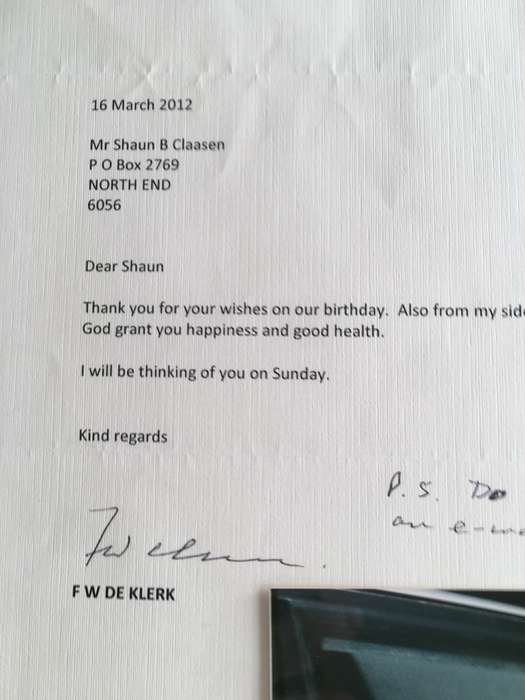 16 March 2012
Mr Shaun B Claasen
P O Box 2769
NORTH END
6056
Dear Shaun
Thank you for your wishes on our birthday. Also from my
God grant you happiness and good health.
I will be thinking of you on Sunday.
Kind regards
P.S. Do
an
F W DE KLERK